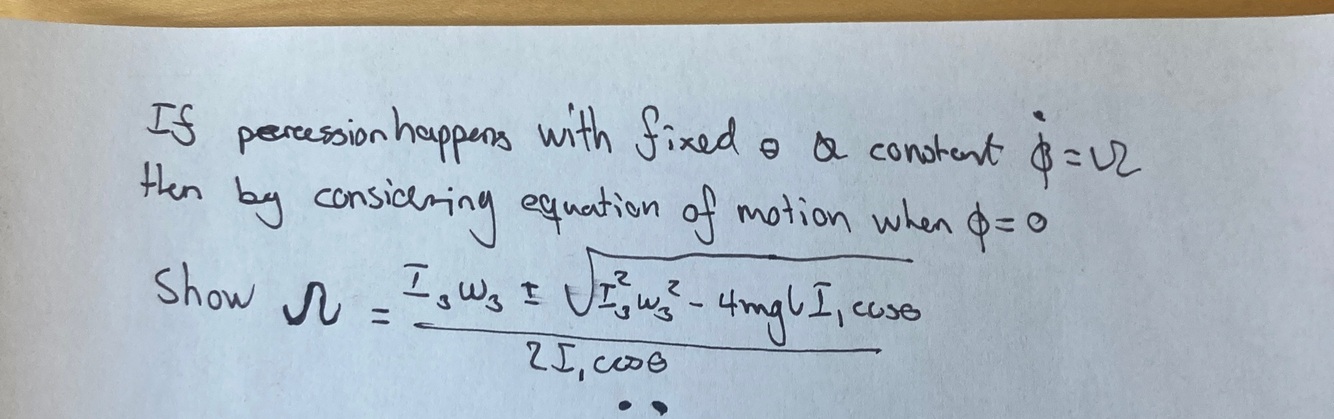 If percession happens with fixed θ & constant φ̇ = Ω
then by considering equation of motion when φ = 0
Show Ω = (I₃ω₃ ± √(I₃²ω₃² - 4mglI₁cosθ)) / (2I₁cosθ)